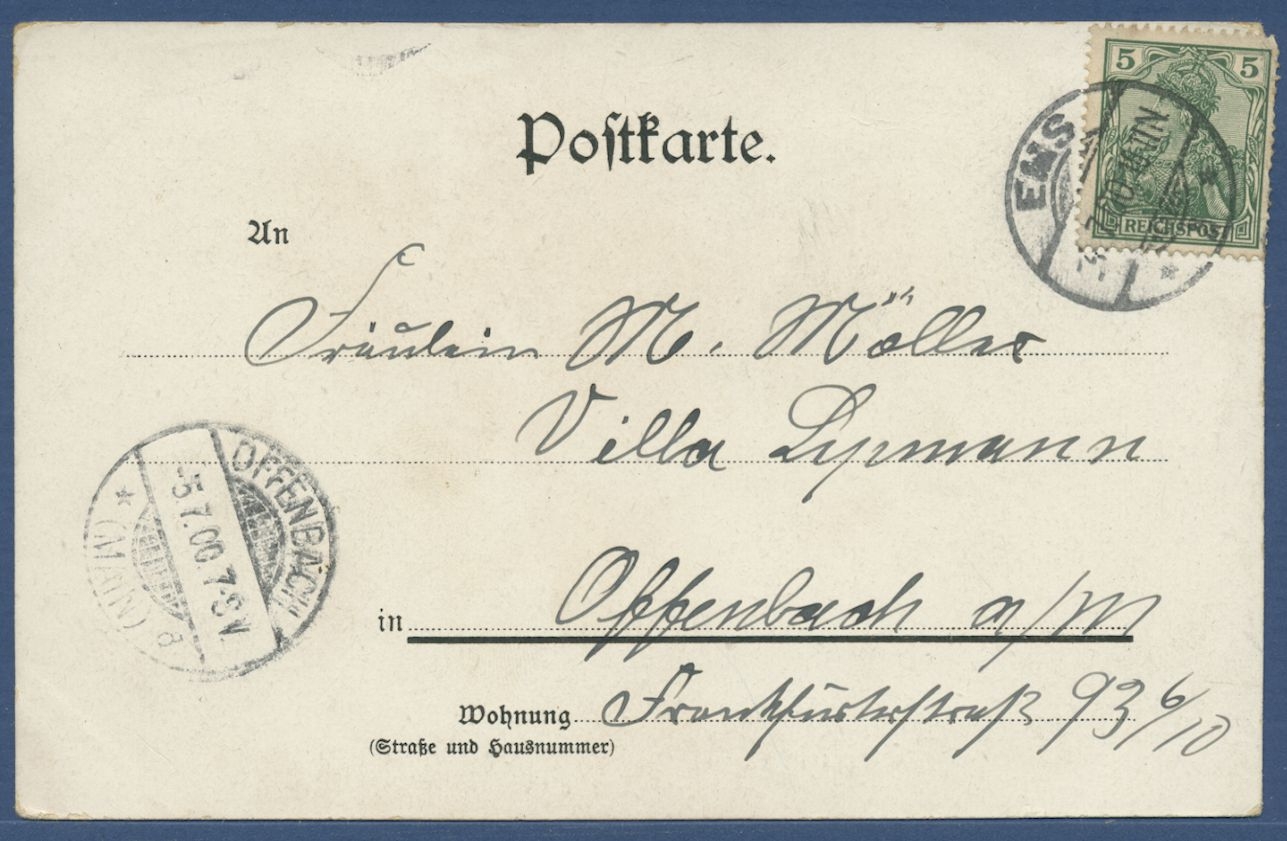 5 5
Postkarte.
EMS
REICHSPOST
An
Fräulein M. Möller
Villa Lypmann
OFFENBACH
-5.7.00.7-8V.
(MAIN)
in Offenbach a/M
Wohnung Frankfurterstraß 93 6/10
(Straße und Hausnummer)